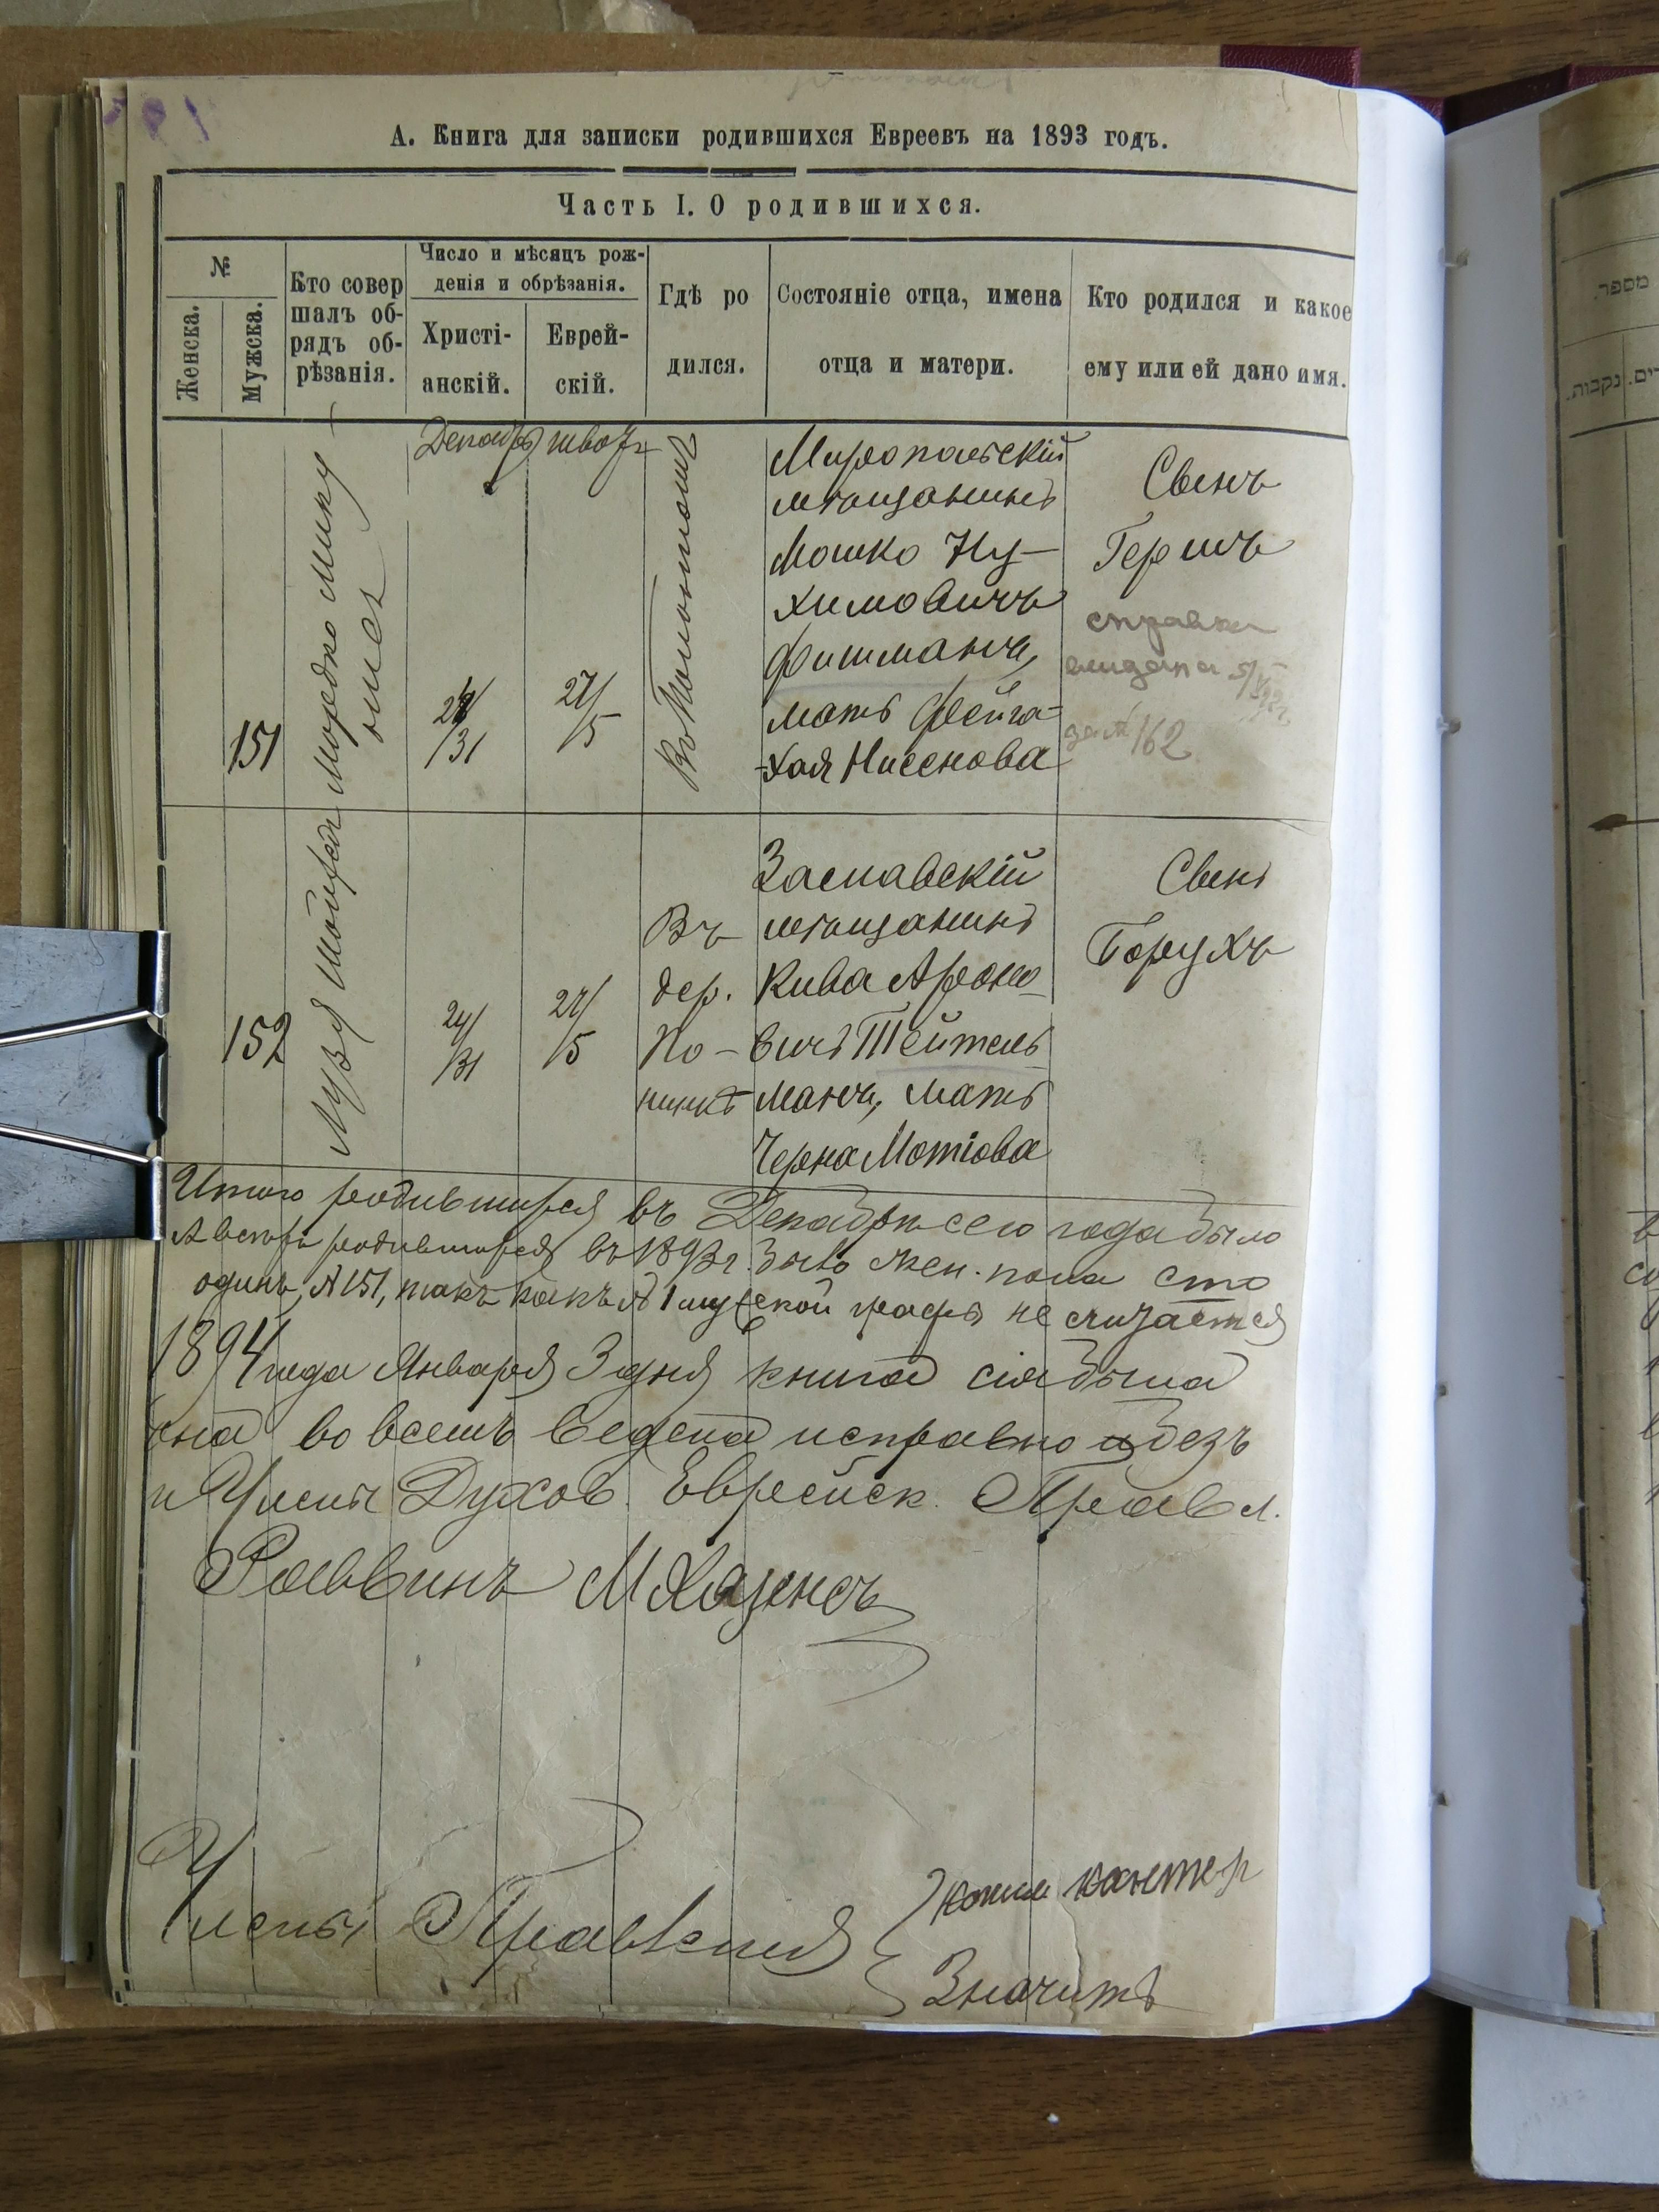 А. Книга для записки родившихся Евреевъ на 1893 годъ.
Часть I. О родившихся.
№
Женска.
Мужска.
Кто совер
шалъ об-
рядъ об-
рѣзанія.
Число и мѣсяцъ рож-
денія и обрѣзанія.
Христі-
анскій.
Еврей-
скій.
Гдѣ ро
дился.
Состояніе отца, имена
отца и матери.
Кто родился и какое
ему или ей дано имя.
151
Мордко
24/
/31
27/
/5
Миропольскій
мѣщанинъ
Мошко Ну-
химовичъ
Фишманъ,
мать Фейга-
Хая Нисенова
Свенъ
Гершъ
справка
выдана
за № 162
152
24/
/31
27/
/5
Въ
дер.
По-
нинкѣ
Заславскій
мѣщанинъ
КиваАроно-
вичъ Тейтель
манъ, мать
Черна Мотіова
Свенъ
Борухъ
Итого родившихся въ Декабрѣ сего года было
А всего родившихся въ 1893 г. было жен. пола сто
одинъ, №151, такъ какъ № 1 мужской графы не считается
1894 года Января 3 дня книга сія была
во всемъ ведена исправно и безъ
и Члены Духов. Еврейск. Правл.
Раввинъ М Хазинъ
Члены Правленія
Кантер
Значитъ
מספר.
נקבות.